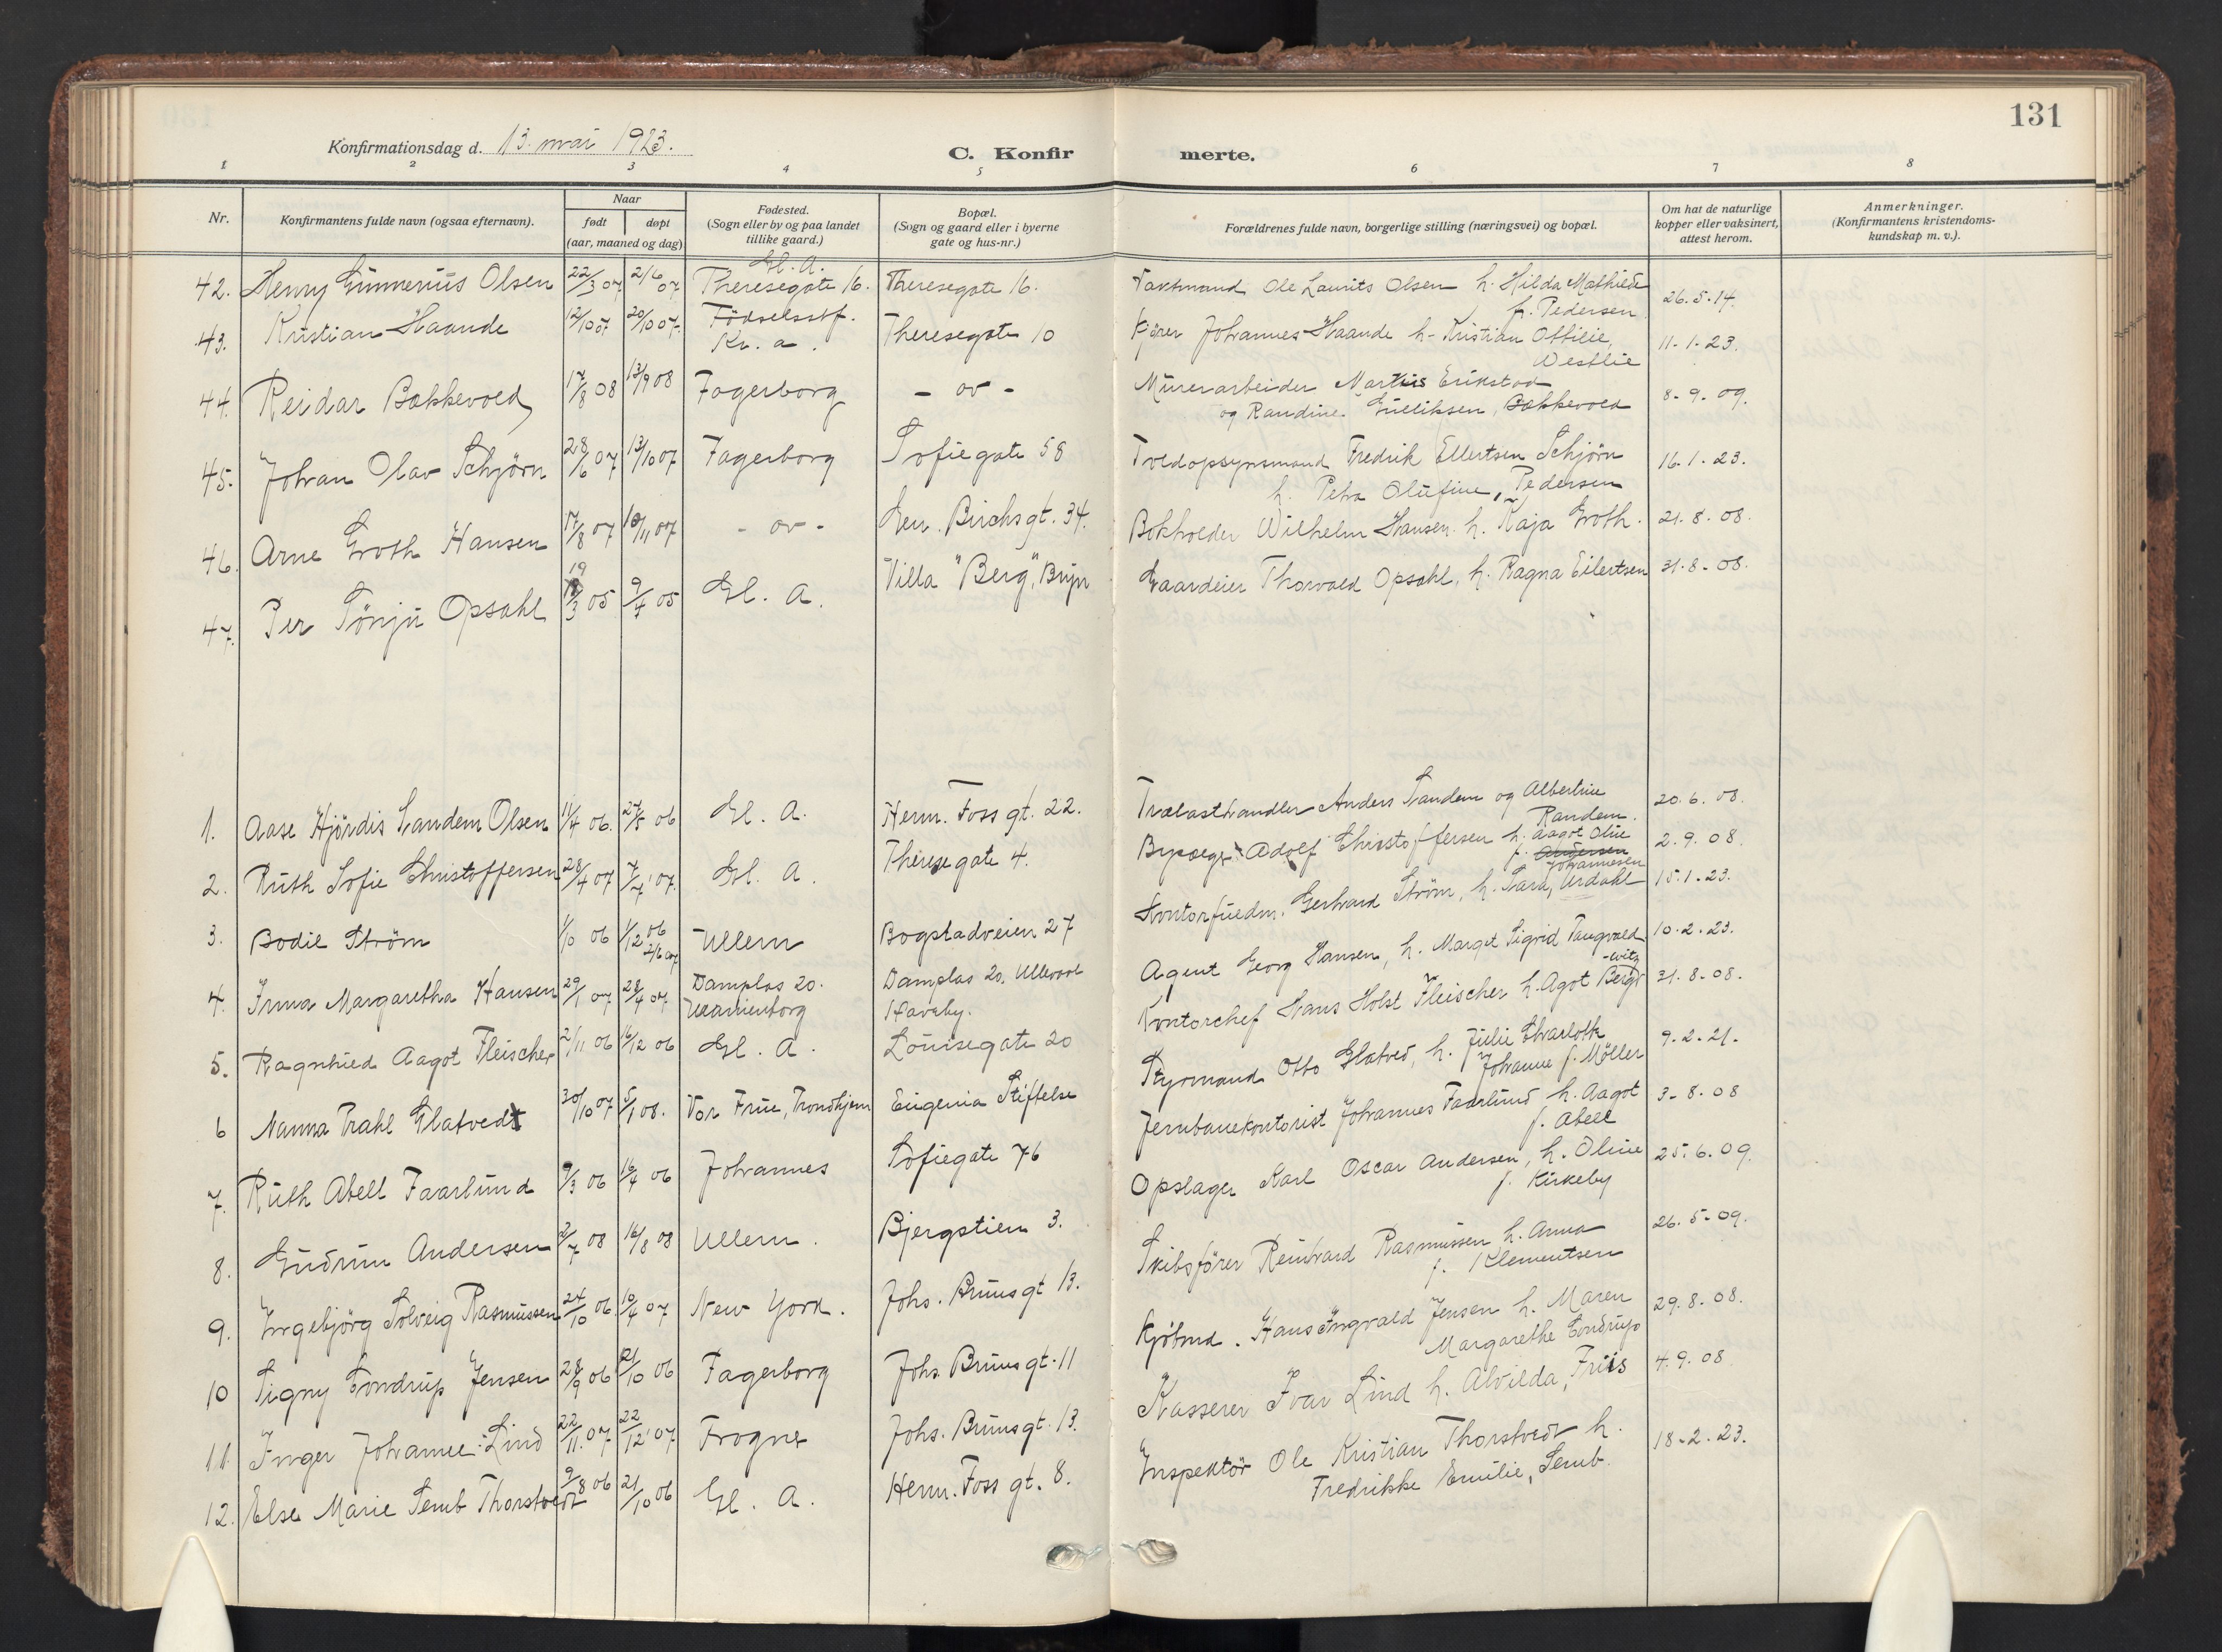 131
Konfirmationsdag d. 13. mai 1923.
C. Konfir merte.
1 2 3 4 5 6 7 8
Nr.
Konfirmantens fulde navn (ogsaa efternavn).
Naar
født døpt
(aar, maaned og dag)
Fødested.
(Sogn eller by og paa landet
tillike gaard.)
Bopæl.
(Sogn og gaard eller i byerne
gate og hus-nr.)
Forældrenes fulde navn, borgerlige stilling (næringsvei) og bopæl.
Om hat de naturlige
kopper eller vaksinert,
attest herom.
Anmerkninger.
(Konfirmantens kristendoms-
kundskap m. v.).
Gl. A.
42. Henry Gunnerius Olsen 22/3 07 2/6 07 Theresegate 16. Theresegate 16. Vaktmand Ole Laurits Olsen h. Hilda Mathilde
f. Pedersen 26.5.14.
43. Kristian Haande 12/10 07 20/10 07 Födselsstf.
Kr. a. Theresegate 10 Kjører Johannes Haande h. Kristian Ottilie,
Westlie 11-1-23.
44. Reidar Bakkevold 17/8 08 13/9 08 Fagerborg - ov - Murerarbeider Martius Erikstad
og Randine Gulliksen, Bakkevold 8-9-09.
45. Johan Olav Schjörn 28/6 07 13/10 07 Fagerborg Sofiegate 58 Toldopsynsmand Fredrik Ellertsen Schjörn
h. Petra Olufine, Pedersen 16.1.23.
46. Arne Groth Hansen 17/8 07 10/11 07 - ov - Gen. Birchsgt. 34. Bokholder Wilhelm Hansen h. Kaja Groth. 21.8.08.
47. Per Tönju Opsahl 19/3 05 9/4 05 Gl. A. Villa "Berg", Bryn Gaardeier Thorvald Opsahl, h. Ragna Eilertsen 31.8-08.
1. Aase Hjördis Sandem Olsen 11/4 06. 27/5 06 Gl. A. Herm. Foss gt. 22. Trælasthandler Anders Sandem og Albertine
Randem. 20.6.08.
2. Ruth Sofie Christoffersen 28/4 07 7/7 07. Gl. A. Therese gate 4. Adolf Christoffersen h. Aagot Oline
f. Andersen
Johannesen 2.9.08.
3. Bodil Ström 1/10 06 1/12 06 Ullern Bogstadveien 27 Kontorfuldm. Gerhard Ström, h. Sara, Urdahl 15.1.23.
4. Irma Margaretha Hansen 29/1 07 28/4 07. Damplas 20.
Uranienborg Damplas 20, Ullevaal
Haveby. Agent Georg Hansen, h. Margit Sigrid Tangvald 10.2.23.
5. Ragnhild Aagot Fleischer 2/11 06 16/12 06 Gl. A. Louisegate 20 Kontorchef Hans Holst Fleischer h. Agot Berge
-witz 31.8-08.
6 Nanna Prahl Glatvedt 30/10 07 5/1 08. Vor Frue, Trondhjem Eugenia Stiftelse Styrmand Otto Glatved, h. Julie Charlotte
Johanne f. Möller 9.2.21.
7. Ruth Abell Faarlund 9/3 06 16/4 06 Johannes Sofiegate 76 Jernbanekontorist Johannes Faarlund h. Aagot
f. Abell 3-8-08
8. Gudrun Andersen 2/7 08 16/8 08 Ullern. Bjergstien 3. Opslager Karl Oscar Andersen, h. Oline
f. Kirkeby 25.6.09.
9. Ingebjörg Solveig Rasmussen 24/10 06. 10/4 07 New York. Johs. Bruns gt 13. Skibsförer Reinhard Rasmussen h. Anna
f. Klementsen 26.5-09.
10 Signy Tondrup Jensen 28/9 06 21/10 06 Fagerborg Johs. Bruns gt. 11 Kjöbmd. Hans Ingvald Jensen h. Maren
Margarethe Tondrup 29.8.08.
11. Inger Johanne Lind 22/11. 07. 22/12 07 Frogner Johs. Bruns gt. 13. Kasserer Ivar Lind h. Alvilda, Friis 4.9.08.
12. Else Marie Semb Thorstvedt 9/8 06 21/10 06 Gl. A. Herm. Foss gt. 8. Inspektör Ole Kristian Thorstvedt h.
Fredrikke Emilie, Semb. 18-2.23.